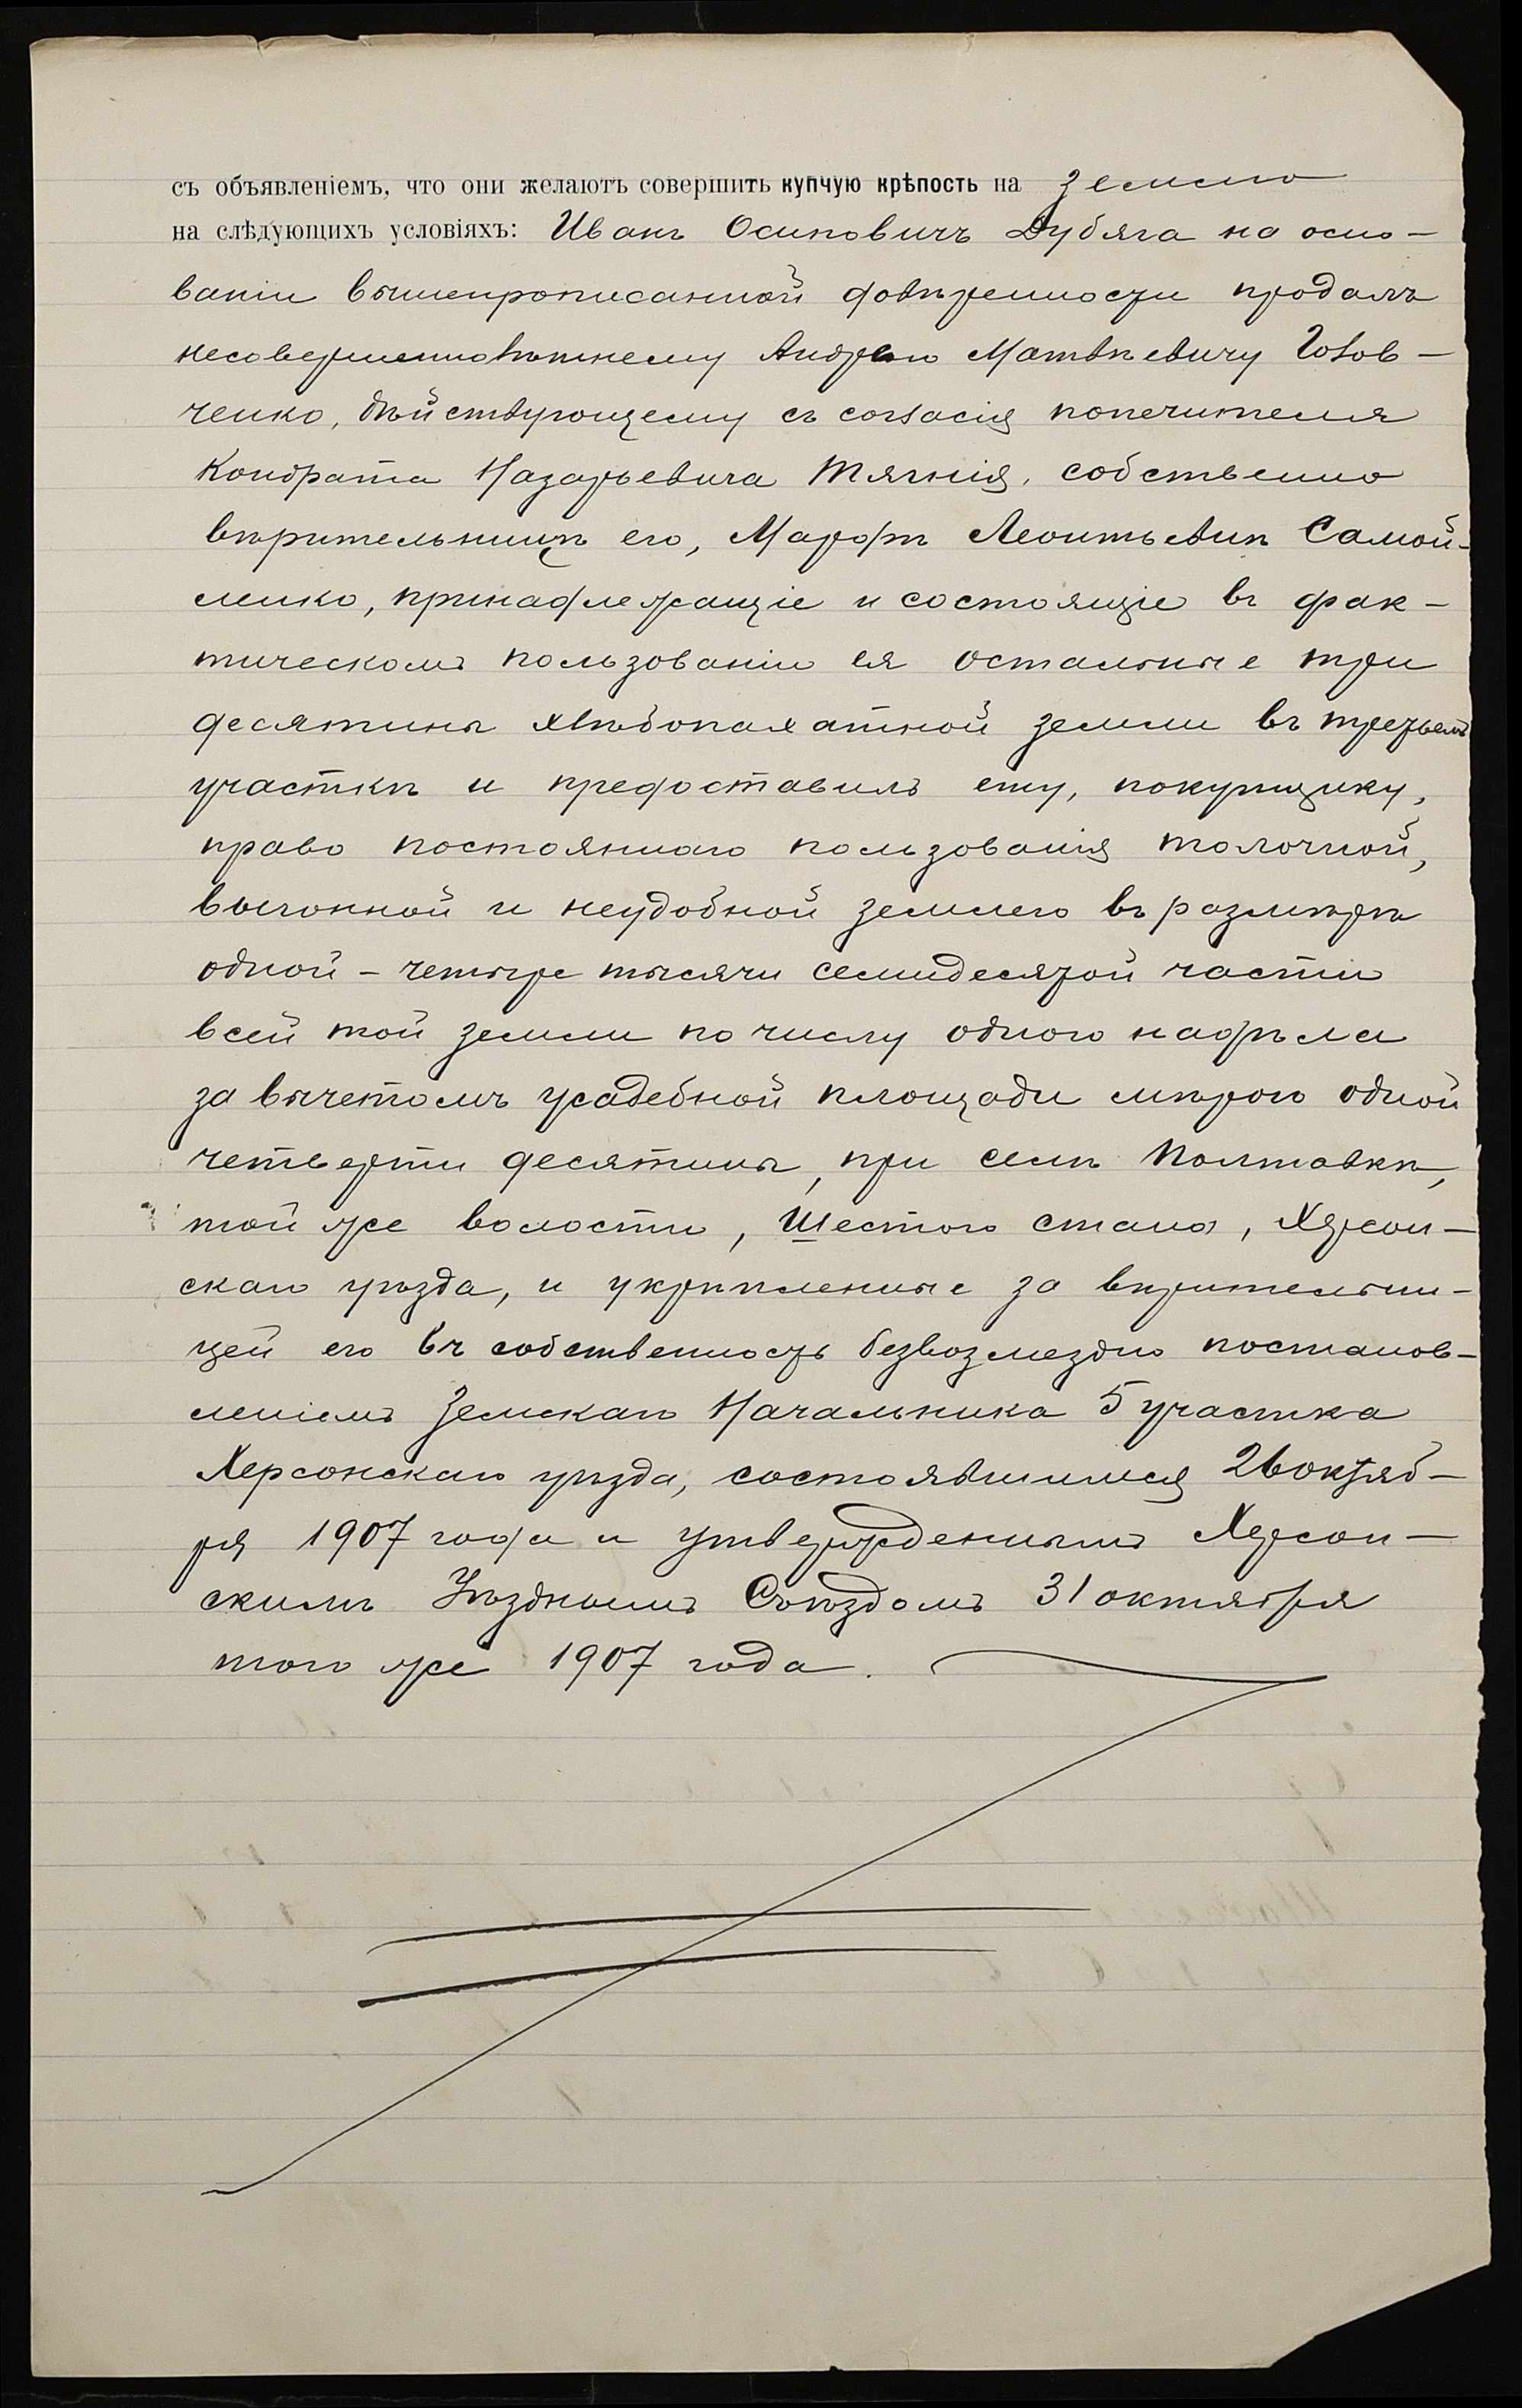 съ объявленіемъ, что они желаютъ совершить купчую крѣпость на землю
на слѣдующихъ условіяхъ: Иванъ Осиповичъ Дубяга на осно-
ваніи вышепрописанной довѣренности продалъ
несовершеннолѣтнему Андрею Матвѣевичу Голов-
ченко, дѣйствующему съ согласія попечителя
Кондрата Назарьевича Тягнія, собственно
вѣрительницѣ его, Марфѣ Леонтьевнѣ Самой-
ленко, принадлежащіе и состоящіе въ фак-
тическомъ пользованіи ея остальные три
десятины хлѣбопахатной земли въ третьемъ
участкѣ и предоставилъ ему, покупщику,
право постояннаго пользованія толочной,
выгонной и неудобной землею въ размѣрѣ
одной - четыре тысячи семидесятой части
всей той земли по числу одного надѣла
за вычетомъ усадебной площади мѣрою одной
четверти десятины, при селѣ Полтавкѣ,
той же волости, Шестого стана, Херсон-
скаго уѣзда, и укрѣпленные за вѣрительни-
цей его въ собственность безвозмездно постанов-
леніемъ Земскаго Начальника 5 участка
Херсонскаго уѣзда, состоявшимся 26 октяб-
ря 1907 года и утвержденнымъ Херсон-
скимъ Уѣзднымъ Съѣздомъ 31 октября
того же 1907 года.